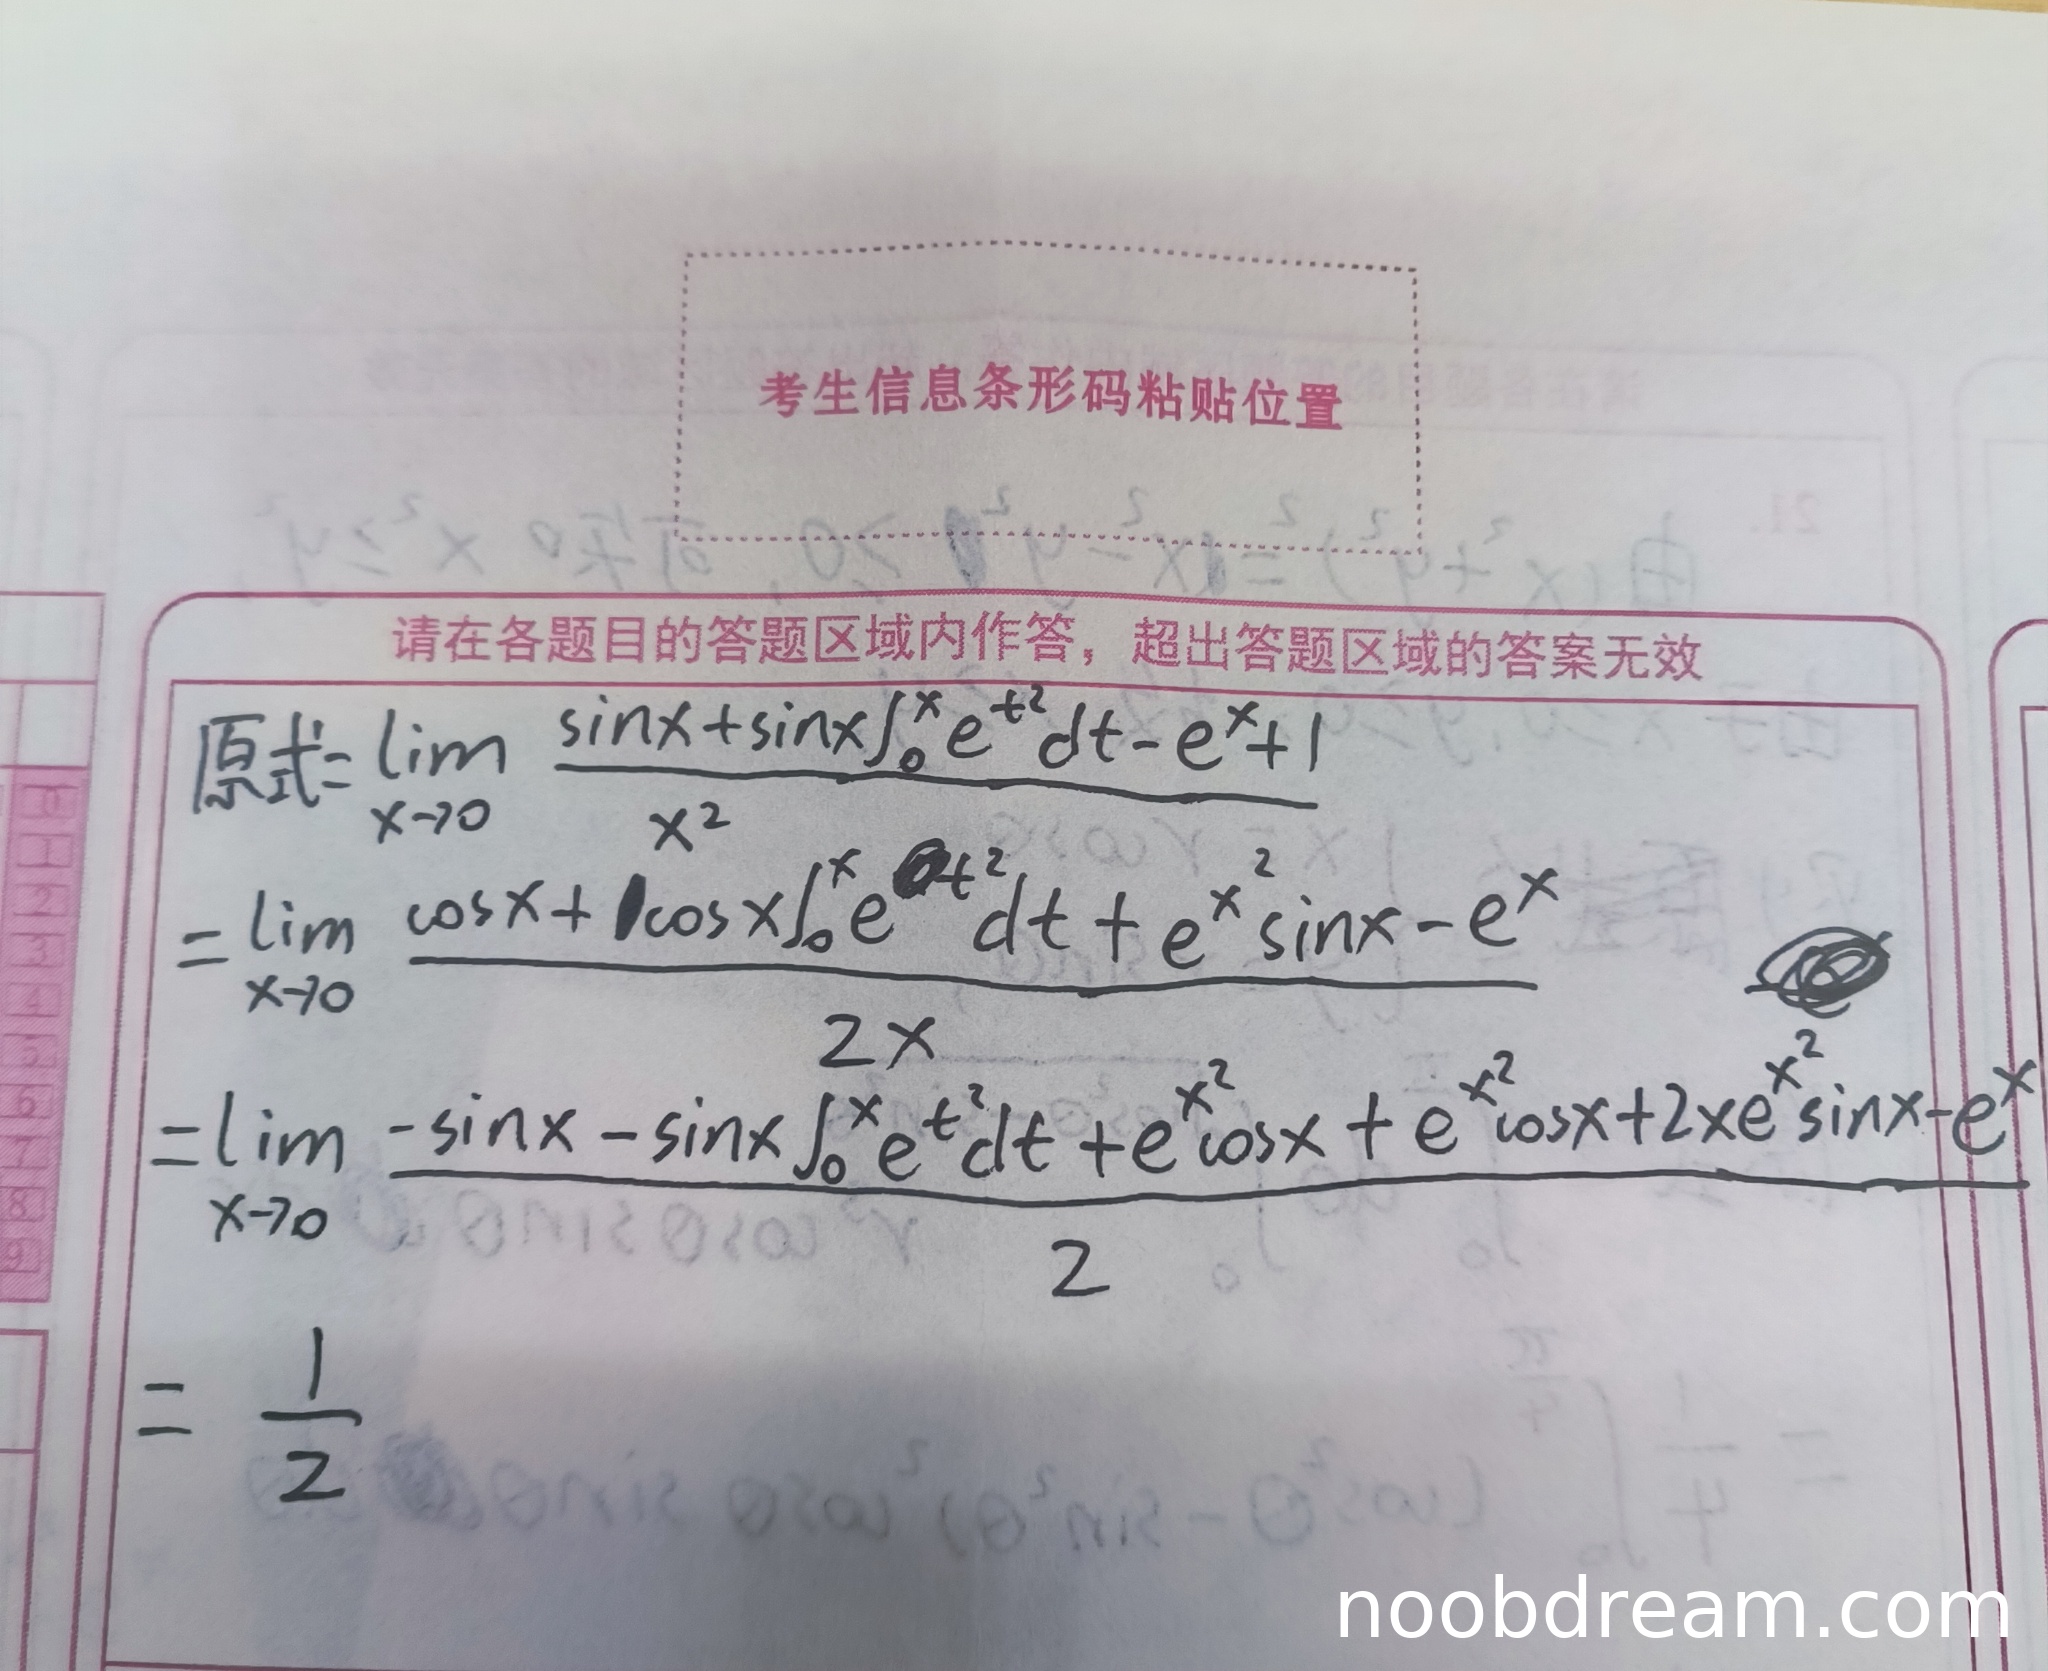 考生信息条形码粘贴位置
请在各题目的答题区域内作答，超出答题区域的答案无效
原式 = lim x→0 (sinx+sinx∫₀ˣ e^t² dt - e^x+1) / x²
= lim x→0 (cosx+cosx∫₀ˣ e^t² dt + e^x² sinx - e^x) / 2x
= lim x→0 (-sinx - sinx∫₀ˣ e^t² dt + e^x² cosx + e^x² cosx+2xe^x² sinx - e^x) / 2
= 1/2
0
1
2
3
4
5
6
7
8
9
noobdream.com